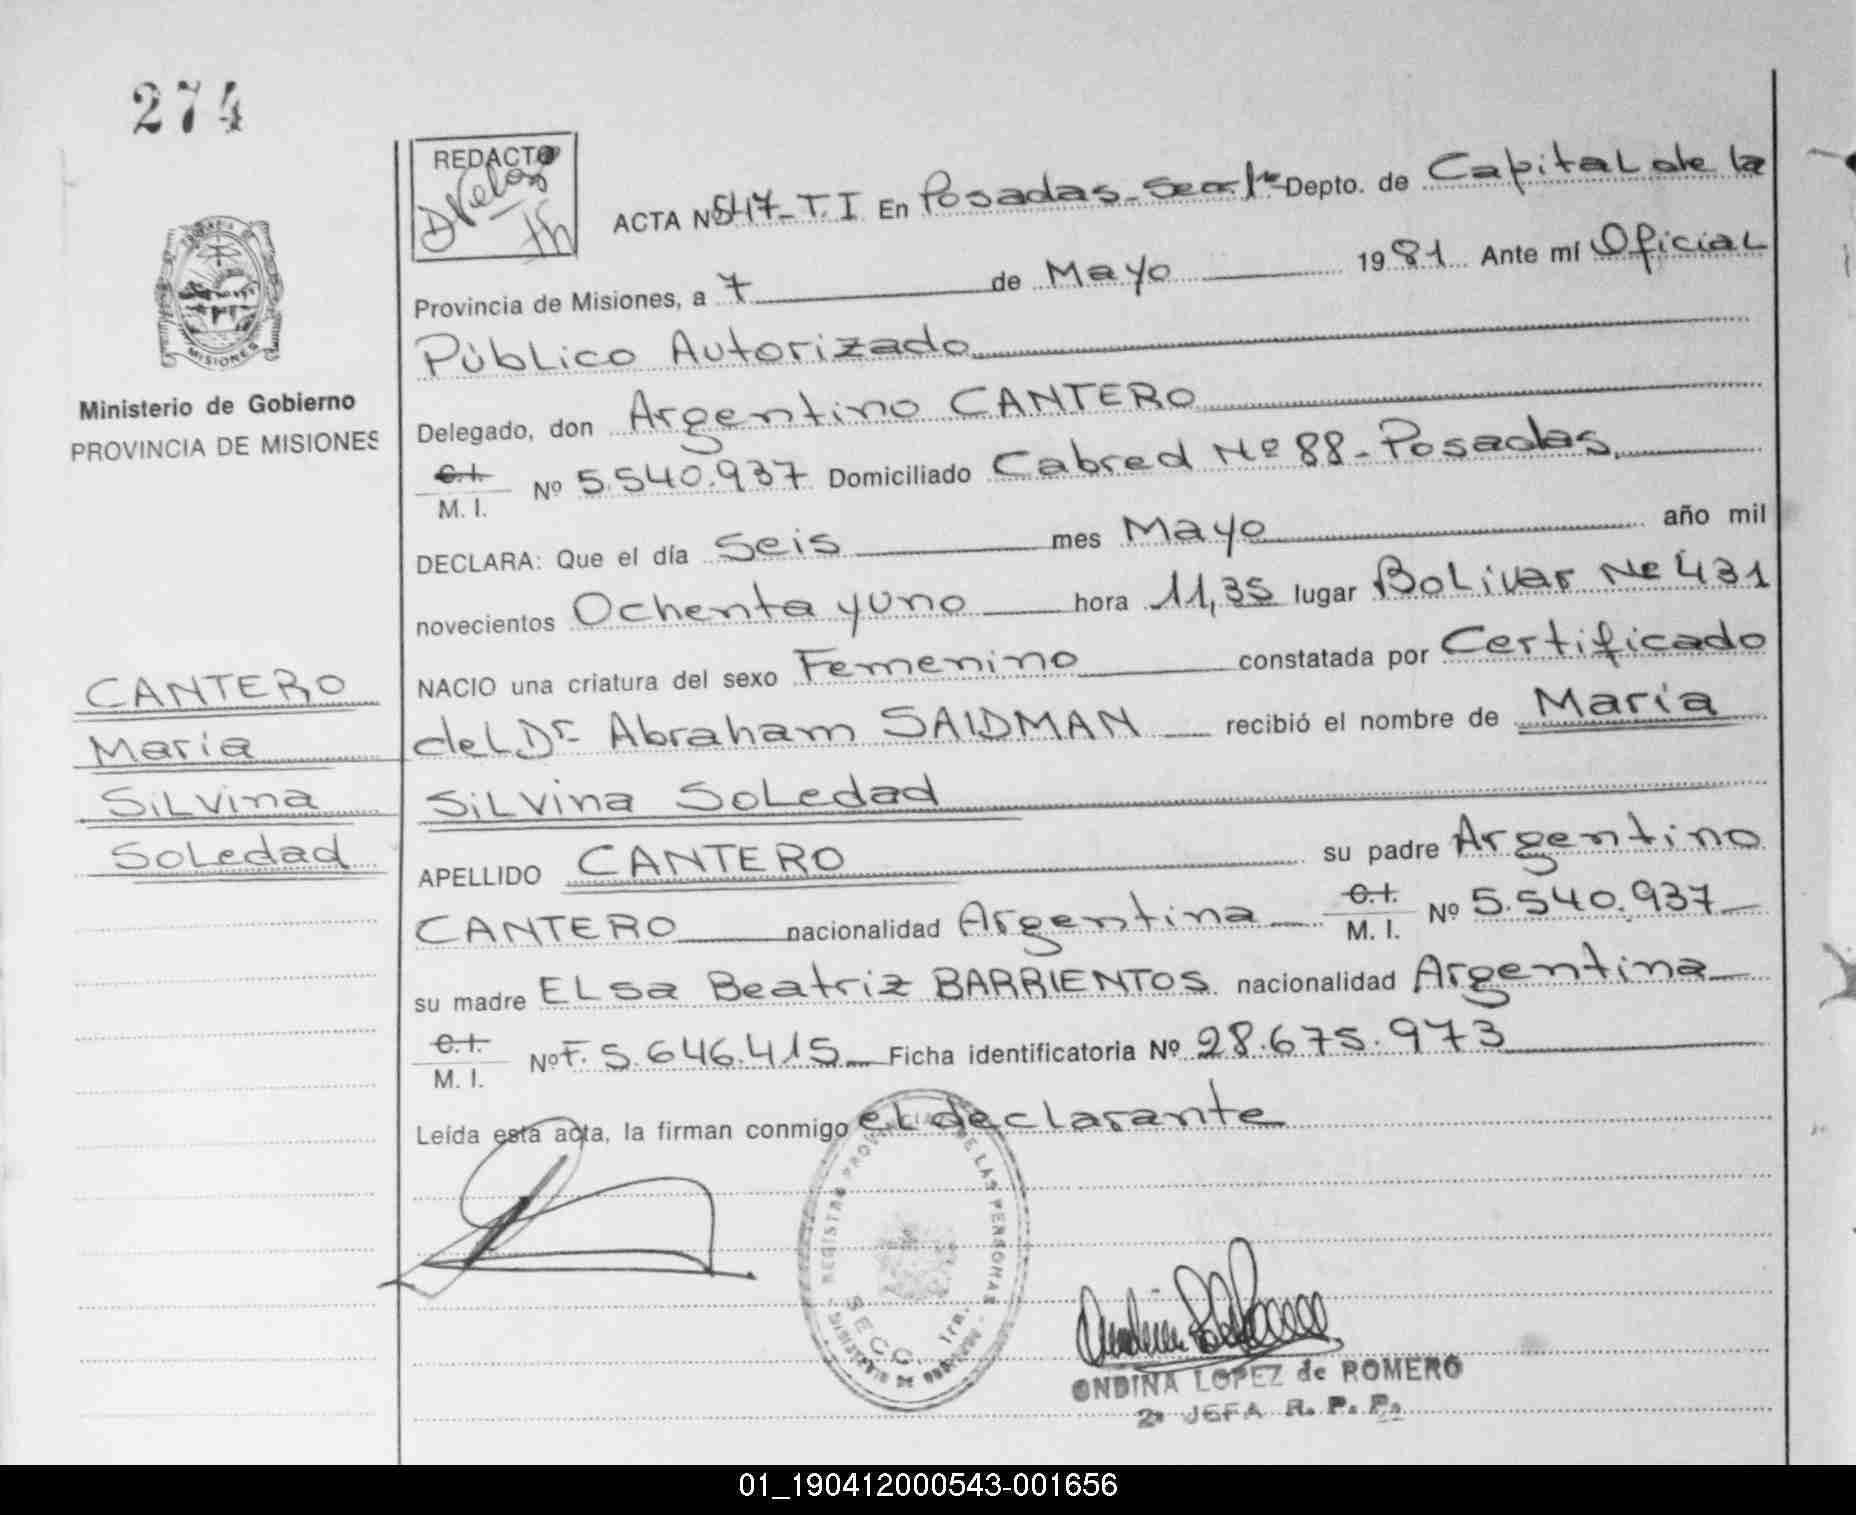 274
REDACTO
ACTA Nº 547-T.I En Posadas-Secc. 1ra- Depto. de Capital de la
Provincia de Misiones, a 7 de Mayo 1981 Ante mí Oficial
Público Autorizado
Delegado, don Argentino CANTERO
C.I.
M. I. Nº 5.540.937 Domiciliado Cabred Nº 88-Posadas,
DECLARA: Que el día Seis mes Mayo año mil
novecientos Ochenta y uno hora 11,35 lugar Bolivar Nº 431
NACIO una criatura del sexo Femenino constatada por Certificado
del Dr. Abraham SAIDMAN recibió el nombre de María
Silvina Soledad
APELLIDO CANTERO su padre Argentino
CANTERO nacionalidad Argentina C.I.
M. I. Nº 5.540.937
su madre Elsa Beatriz BARRIENTOS nacionalidad Argentina
C.I.
M. I. Nº F. 5.646.415 Ficha identificatoria Nº 28.675.973
Leída esta acta, la firman conmigo el declarante
MISIONES
Ministerio de Gobierno
PROVINCIA DE MISIONES
CANTERO
María
Silvina
Soledad
REGISTRO PROVINCIAL DE LAS PERSONAS
SECC. 1ra.
MINISTERIO DE GOBIERNO
ONDINA LOPEZ de ROMERO
2º JEFA R. P. P.
01_190412000543-001656